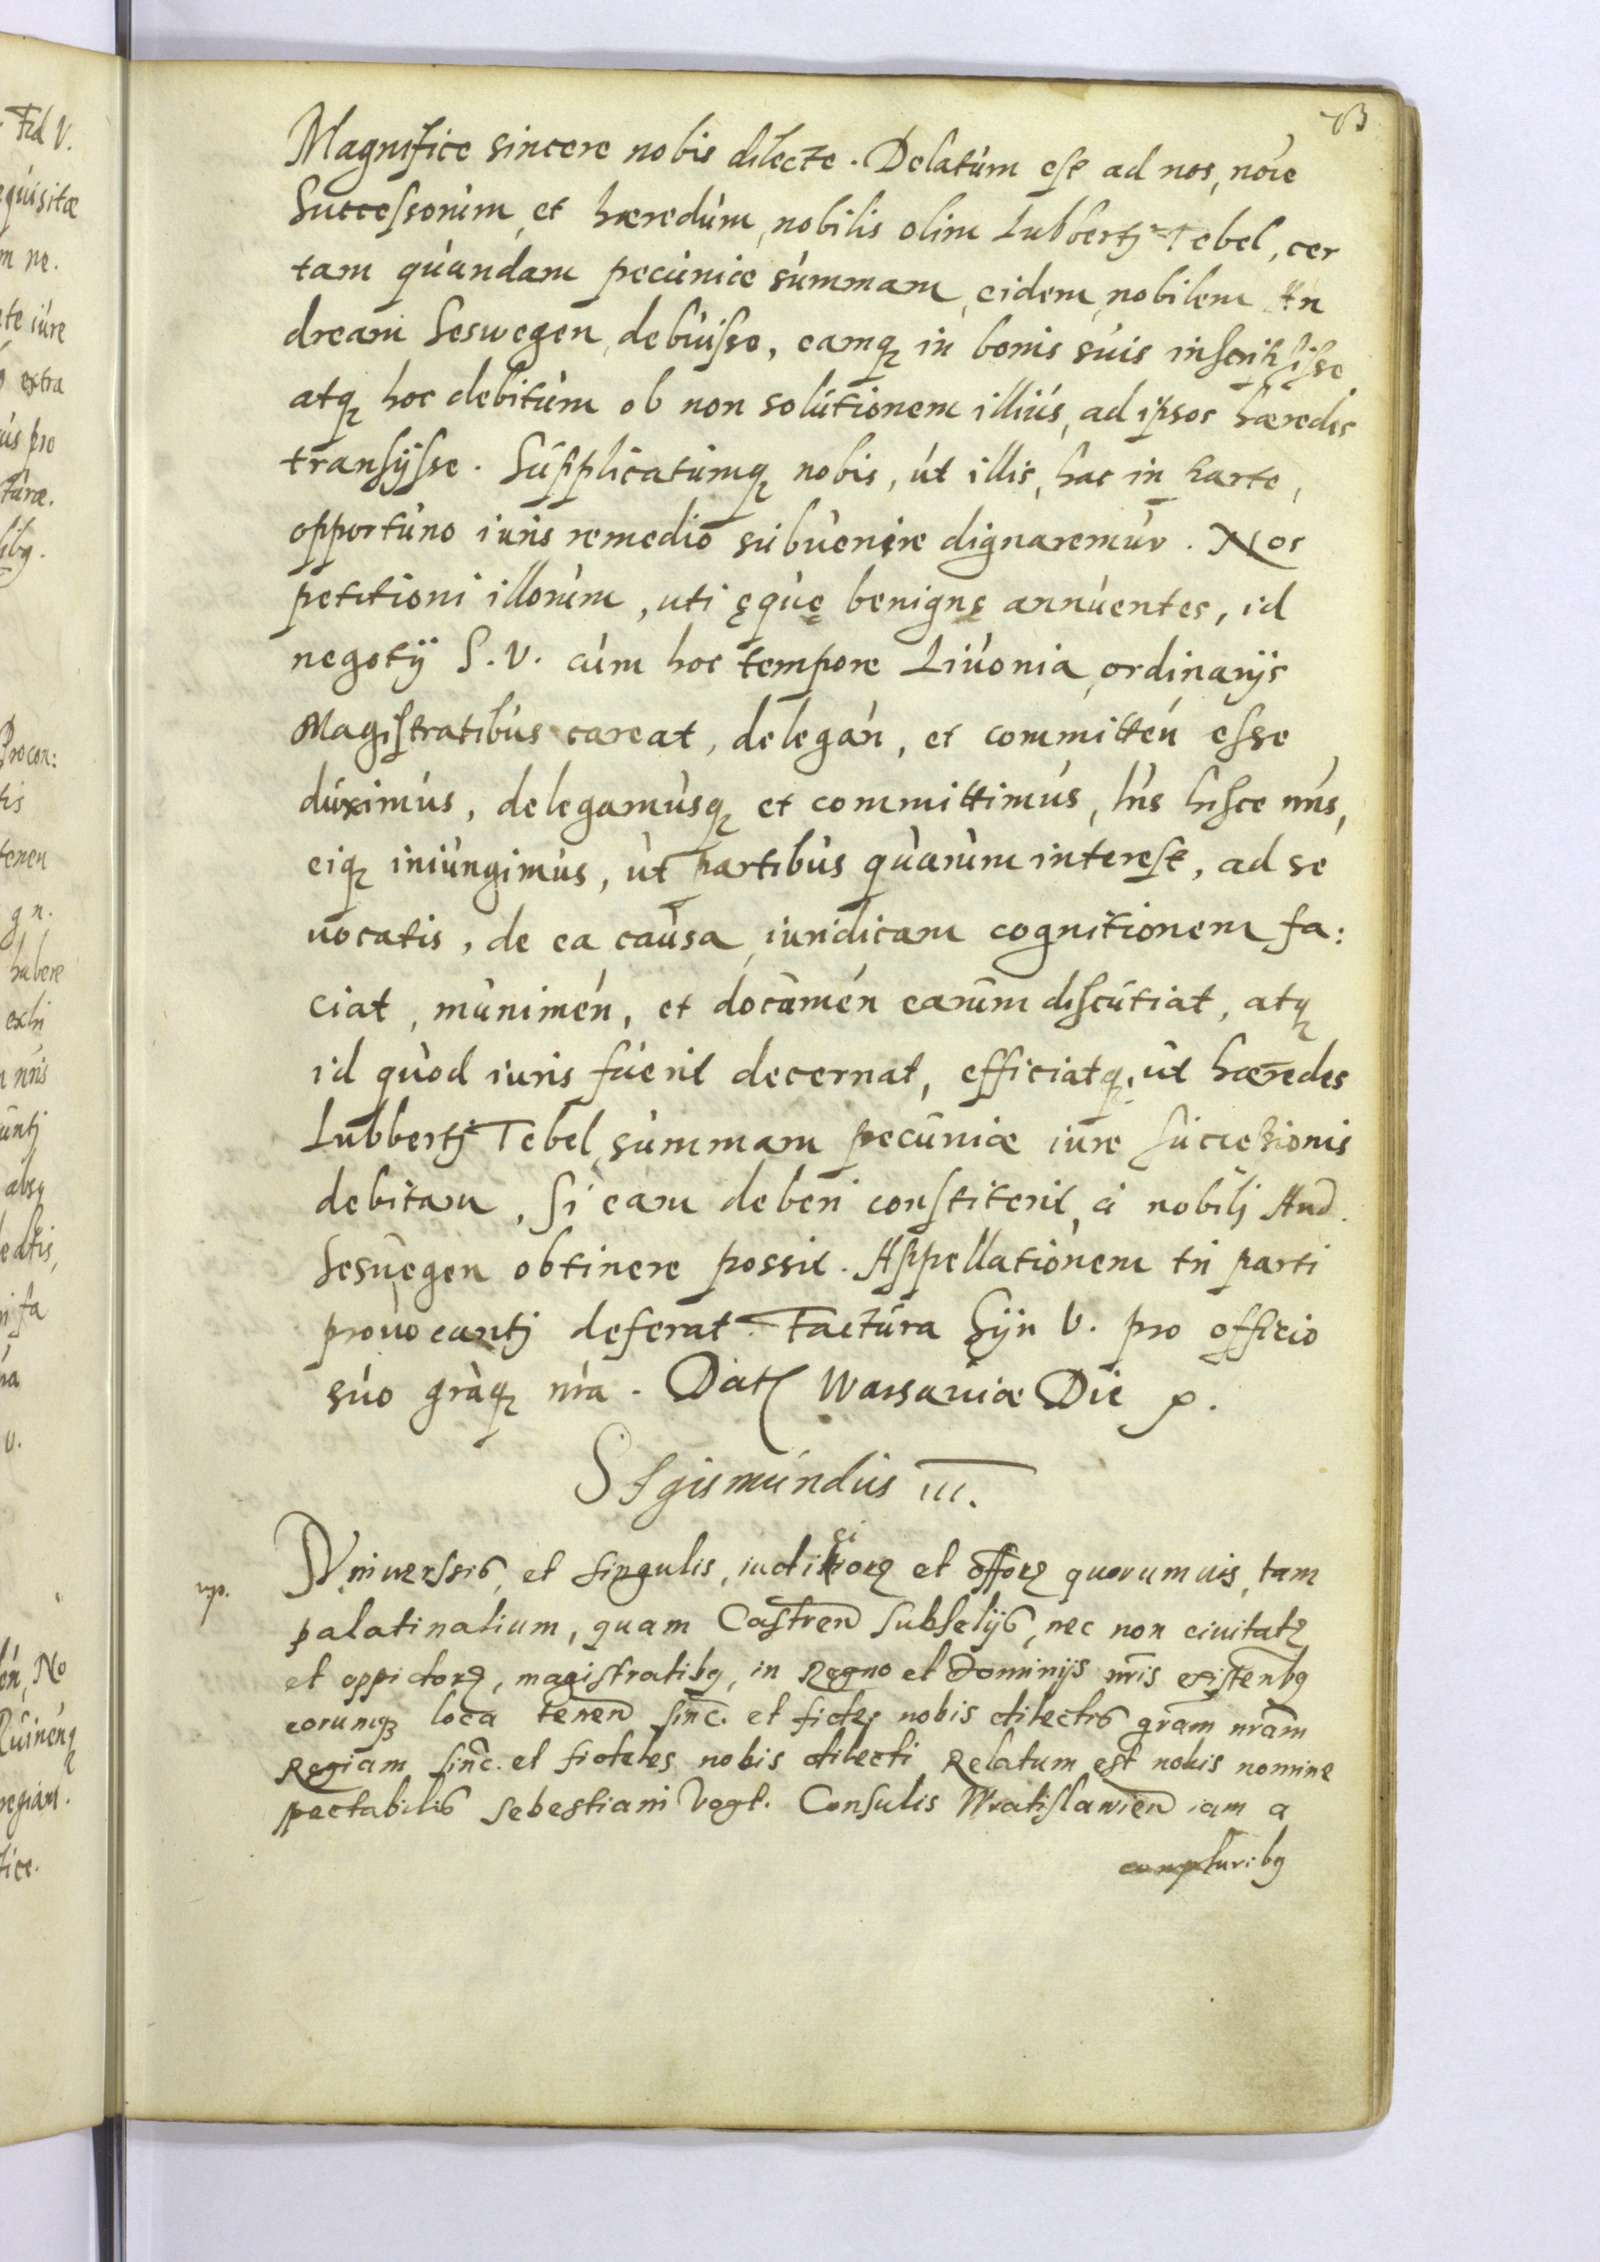 Magnifice sincere nobis dilecte. Delatum est ad nos, noīe
Successorum, et hæredum, nobilis olim Lubbertj Tebel, cer
tam quandam pecuniæ summam, eidem, nobilem An
dream Seswegen, debuisse, eamq̨ in bonis suis inscripsisse,
atq̨ hoc debitum ob non solutionem illius, ad ipsos hæredes
transijsse. Supplicatumq̨ nobis, ut illis, hac in parte,
opportuno iuris remedio subuenire dignaremur. Nos
petitioni illorum, uti ęquę benignę annuentes, id
negotij S. V. cum hoc tempore Liuonia, ordinarijs
Magistratibus careat, delegań, et committeń esse
duximus, delegamusq̨ et committimus, lr̄is hisce nr̄is,
eiq̨ iniungimus, ut partibus quarum interest, ad se
uocatis, de ea causa, iuridicam cognitionem fa:
ciat, munimeń, et documeń earum discutiat, atq̨
id quod iuris fuerit decernat, efficiatq̨, ut hæredes
Lubbertj Tebel, summam pecuniæ iure successionis
debitam, si eam deberi constiterit, à nobilj And.
Sesuegen obtinere possit. Appellationem tn̄ parti
prouocantj deferat. Factura Syn V. pro officio
suo gr̄aq̨ nr̄a. Dat Warsauiæ Die p.
Sigismundus III.
Vniuerssis, et singulis, iudiciorꝝ et offorꝝ quorumuis, tam
palatinalium, quam Castren̄ subselijs, nec non ciuitatꝝ
et oppidorꝝ, magistratibꝰ, in Regno et Dominijs nr̄is existenbꝰ
eorumqꝫ loca tenen̄ sinc. et fidel. nobis dilectis gr̄am nr̄am
Regiam sinc. et fideles nobis dilecti Relatum est nobis nomine
spectabilis Sebestiani Vogt. Consulis Wratislauien̄ iam a
compluribꝰ